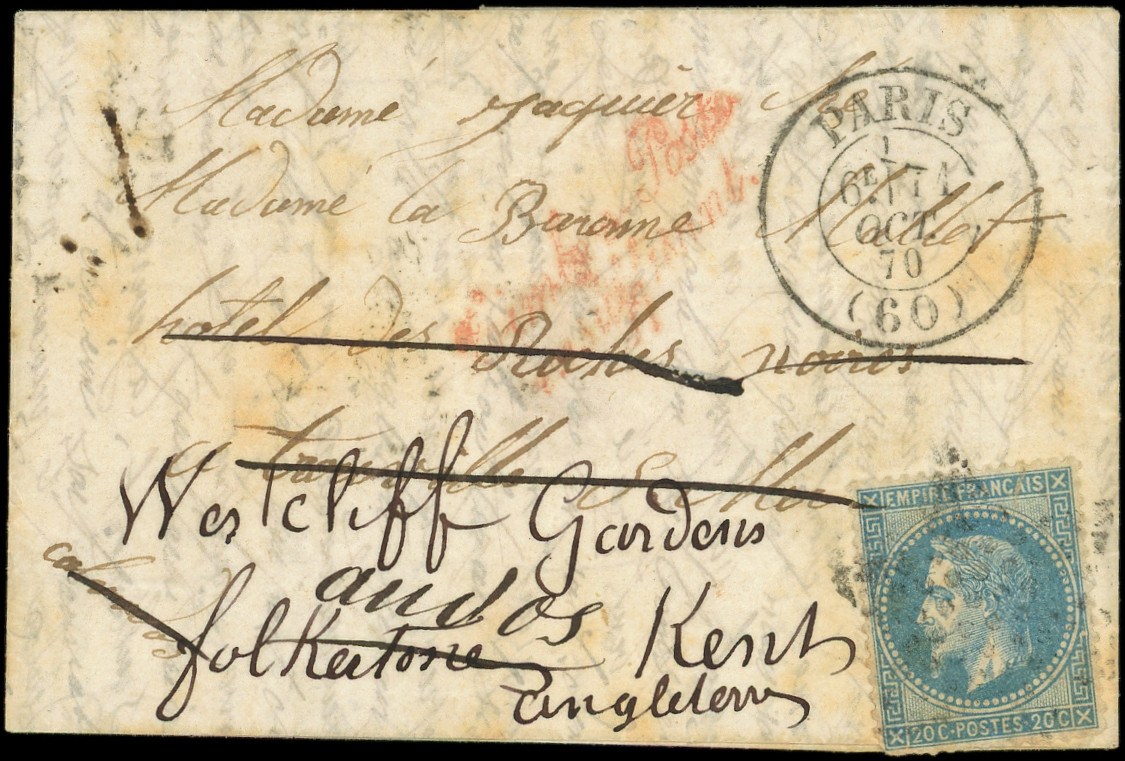 Madame Jaquier
Madame la Baronne Mallet
hotel des Roches noires
trouville S. Mer
Westcliff Gardens
au dos
folkestone Kent
Angleterre
calvados
PARIS
OCT.
70
(60)
EMPIRE FRANÇAIS
20C·POSTES·20C